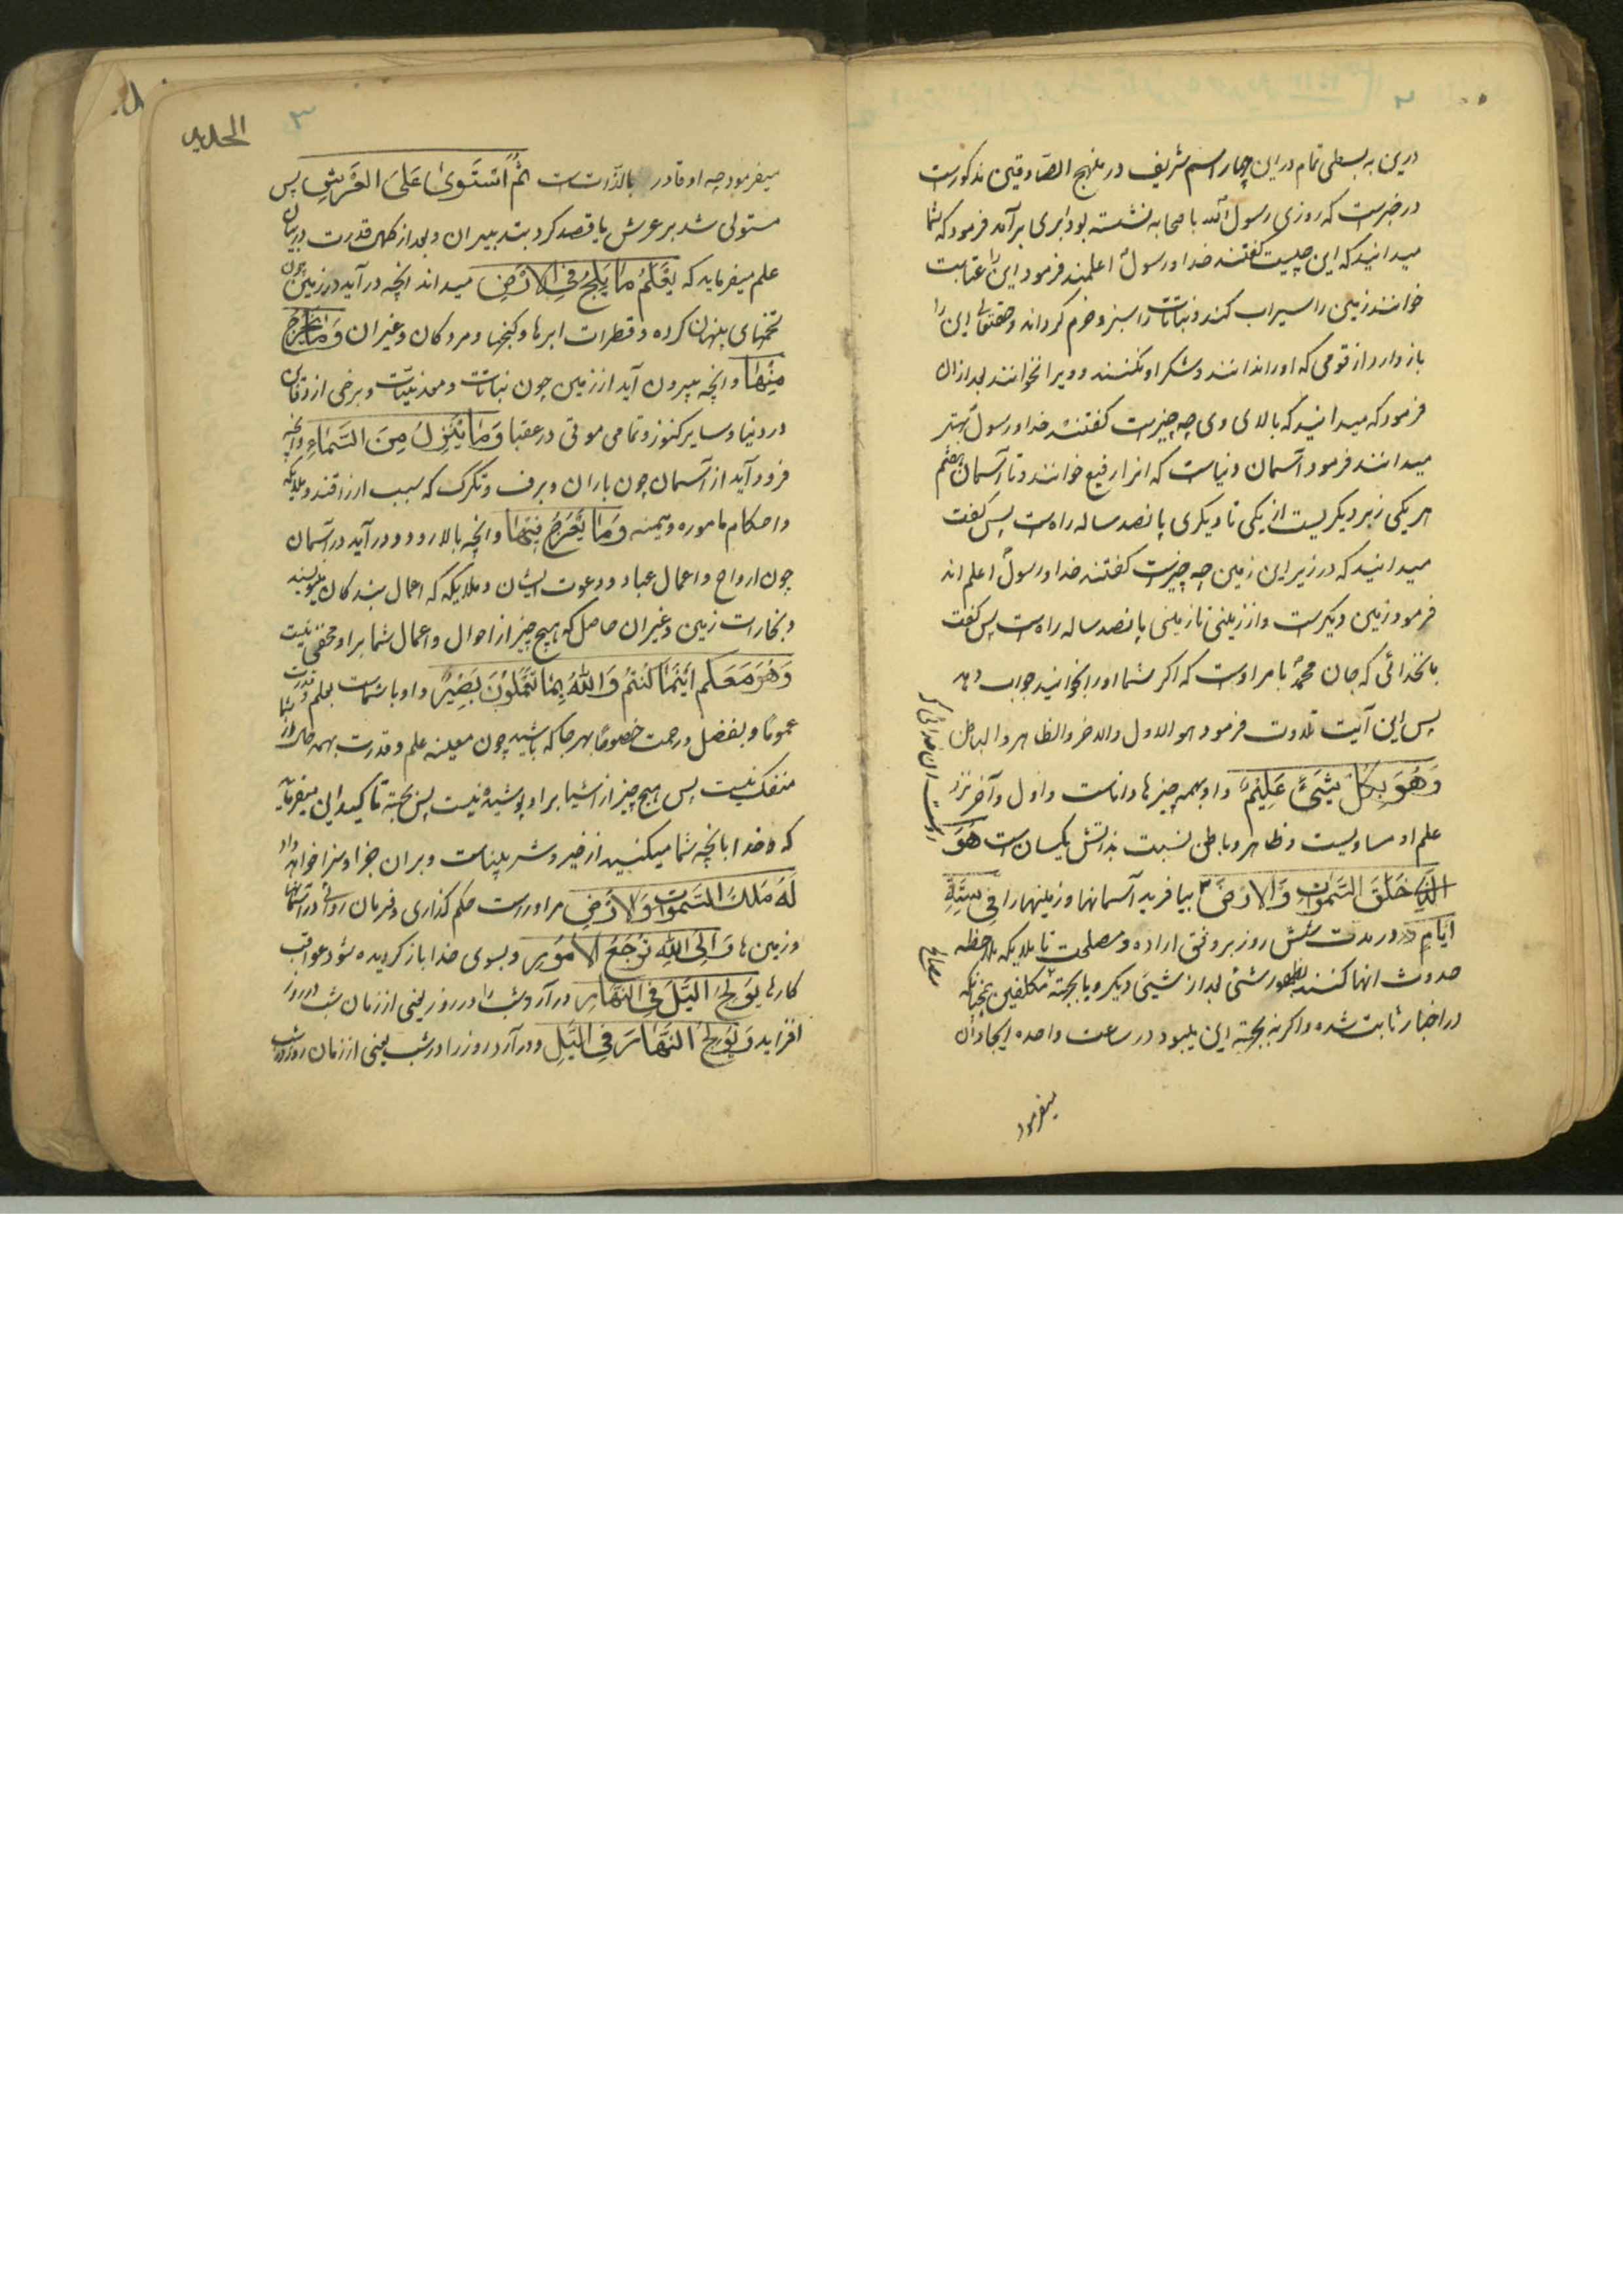 ۲
درین به بسطی تمام در این چهار اسم شریف در منهج الصادقین مذکورست
در خبرست که روزی رسول الله با صحابه نشسته بود ابری برآمد فرمود که شما
میدانید که این چیست گفتند خدا و رسول اعلمند فرمود این را عنابت
خوانند زمین را سیراب کند و نباتات را سبز و خرم گرداند و حقتعالی این را
باز دارد از قومی که او را ندانند و شکر او نکنند و ویرا نخوانند بعد از ان
فرمود که میدانید که بالای وی چه چیزست گفتند خدا و رسول بهتر
میدانند فرمود آسمان دنیاست که انرا رفیع خوانند و تا آسمان هفتم
هر یکی زبر دیگریست از یکی تا دیگری پانصد ساله راهست پس گفت
میدانید که در زیر این زمین چه چیزست گفتند خدا و رسول اعلم اند
فرمود زمین دیگرست و از زمینی تا زمینی پانصد ساله راهست پس گفت
بانخدائی که جان محمد بامر اوست که اگر شما او را بخوانید جواب دهد
پس این آیت تلاوت فرمود هو الاول والاخر والظاهر والباطن
وَهُوَ بِكُلِّ شَيْءٍ عَلِيمٌ و او بهمه چیزها داناست و اول و آخر نزد
علم او مساویست و ظاهر و باطن نسبت بذاتش یکسان است هُوَ
الَّذِي خَلَقَ السَّمٰوٰتِ وَالْاَرْضَ بیافرید آسمانها و زمینها را فِي سِتَّةِ
اَيَّامٍ در مدت شش روز بر وفق اراده و مصلحت تا ملایکه ملاحظه
حدوث انها کنند بظهور شئ بعد از شیئی دیگر و یا بجهة مکلفین چنانکه
در اخبار ثابت شده و اگر نه بجهة این میبود در ساعت واحده ایجاد آن
میفرمود
الحدید
۳
میفرمود چه او قادر بالذات ست ثُمَّ اسْتَوٰى عَلَى الْعَرْشِ پس
مستولی شد بر عرش یا قصد کرد بتدبیر ان و بعد از کمال قدرت در بیان
علم میفرماید که يَعْلَمُ مَا يَلِجُ فِي الْاَرْضِ میداند انچه در آید در زمین چون
تخمهای پنهان کرده و قطرات ابرها و گنجها و مردگان و غیر ان وَمَا يَخْرُجُ
مِنْهَا و انچه بیرون آید از زمین چون نباتات و معدنیات و برخی از دفاین
در دنیا و سایر کنوز و تمامی موتی در عقبا وَمَا يَنْزِلُ مِنَ السَّمَاءِ و انچه
فرود آید از آسمان چون باران و برف و تگرگ که سبب ارزاقند و ملایکه
و احکام ماموره و وَمَا يَعْرُجُ فِيهَا و انچه بالا رود و در آید در آسمان
چون ارواح و اعمال عباد و دعوت ایشان و ملایکه که اعمال بندگان مینویسند
و بخارات زمین و غیر ان حاصل که هیچ چیز از احوال و اعمال شما بر او مخفی نیست
وَهُوَ مَعَكُمْ اَيْنَمَا كُنْتُمْ وَاللّٰهُ بِمَا تَعْمَلُونَ بَصِيرٌ و او با شماست بعلم و قدرت
عموما و بفضل و رحمت خصوصا بهر جا که باشید چون معیته علم و قدرت بهمه حال از شما
منفک نیست پس هیچ چیز از اشیا بر او پوشیده نیست پس بجهة تاکید این میفرماید
که خدا بانچه شما میکنید از خیر و شر بیناست و بر ان جزا و سزا خواهد داد
لَهُ مُلْكُ السَّمٰوٰتِ وَالْاَرْضِ مر اوراست حکم گذاری و فرمان روائی در آسمانها
و زمین ها وَاِلَى اللّٰهِ تُرْجَعُ الْاُمُورُ و بسوی خدا باز گردیده شود عواقب
کارها يُولِجُ الَّيْلَ فِي النَّهَارِ در آرد شب را در روز یعنی از زمان شب در روز
افزاید وَيُولِجُ النَّهَارَ فِي الَّيْلِ و در آرد روز را در شب یعنی از زمان روز در شب